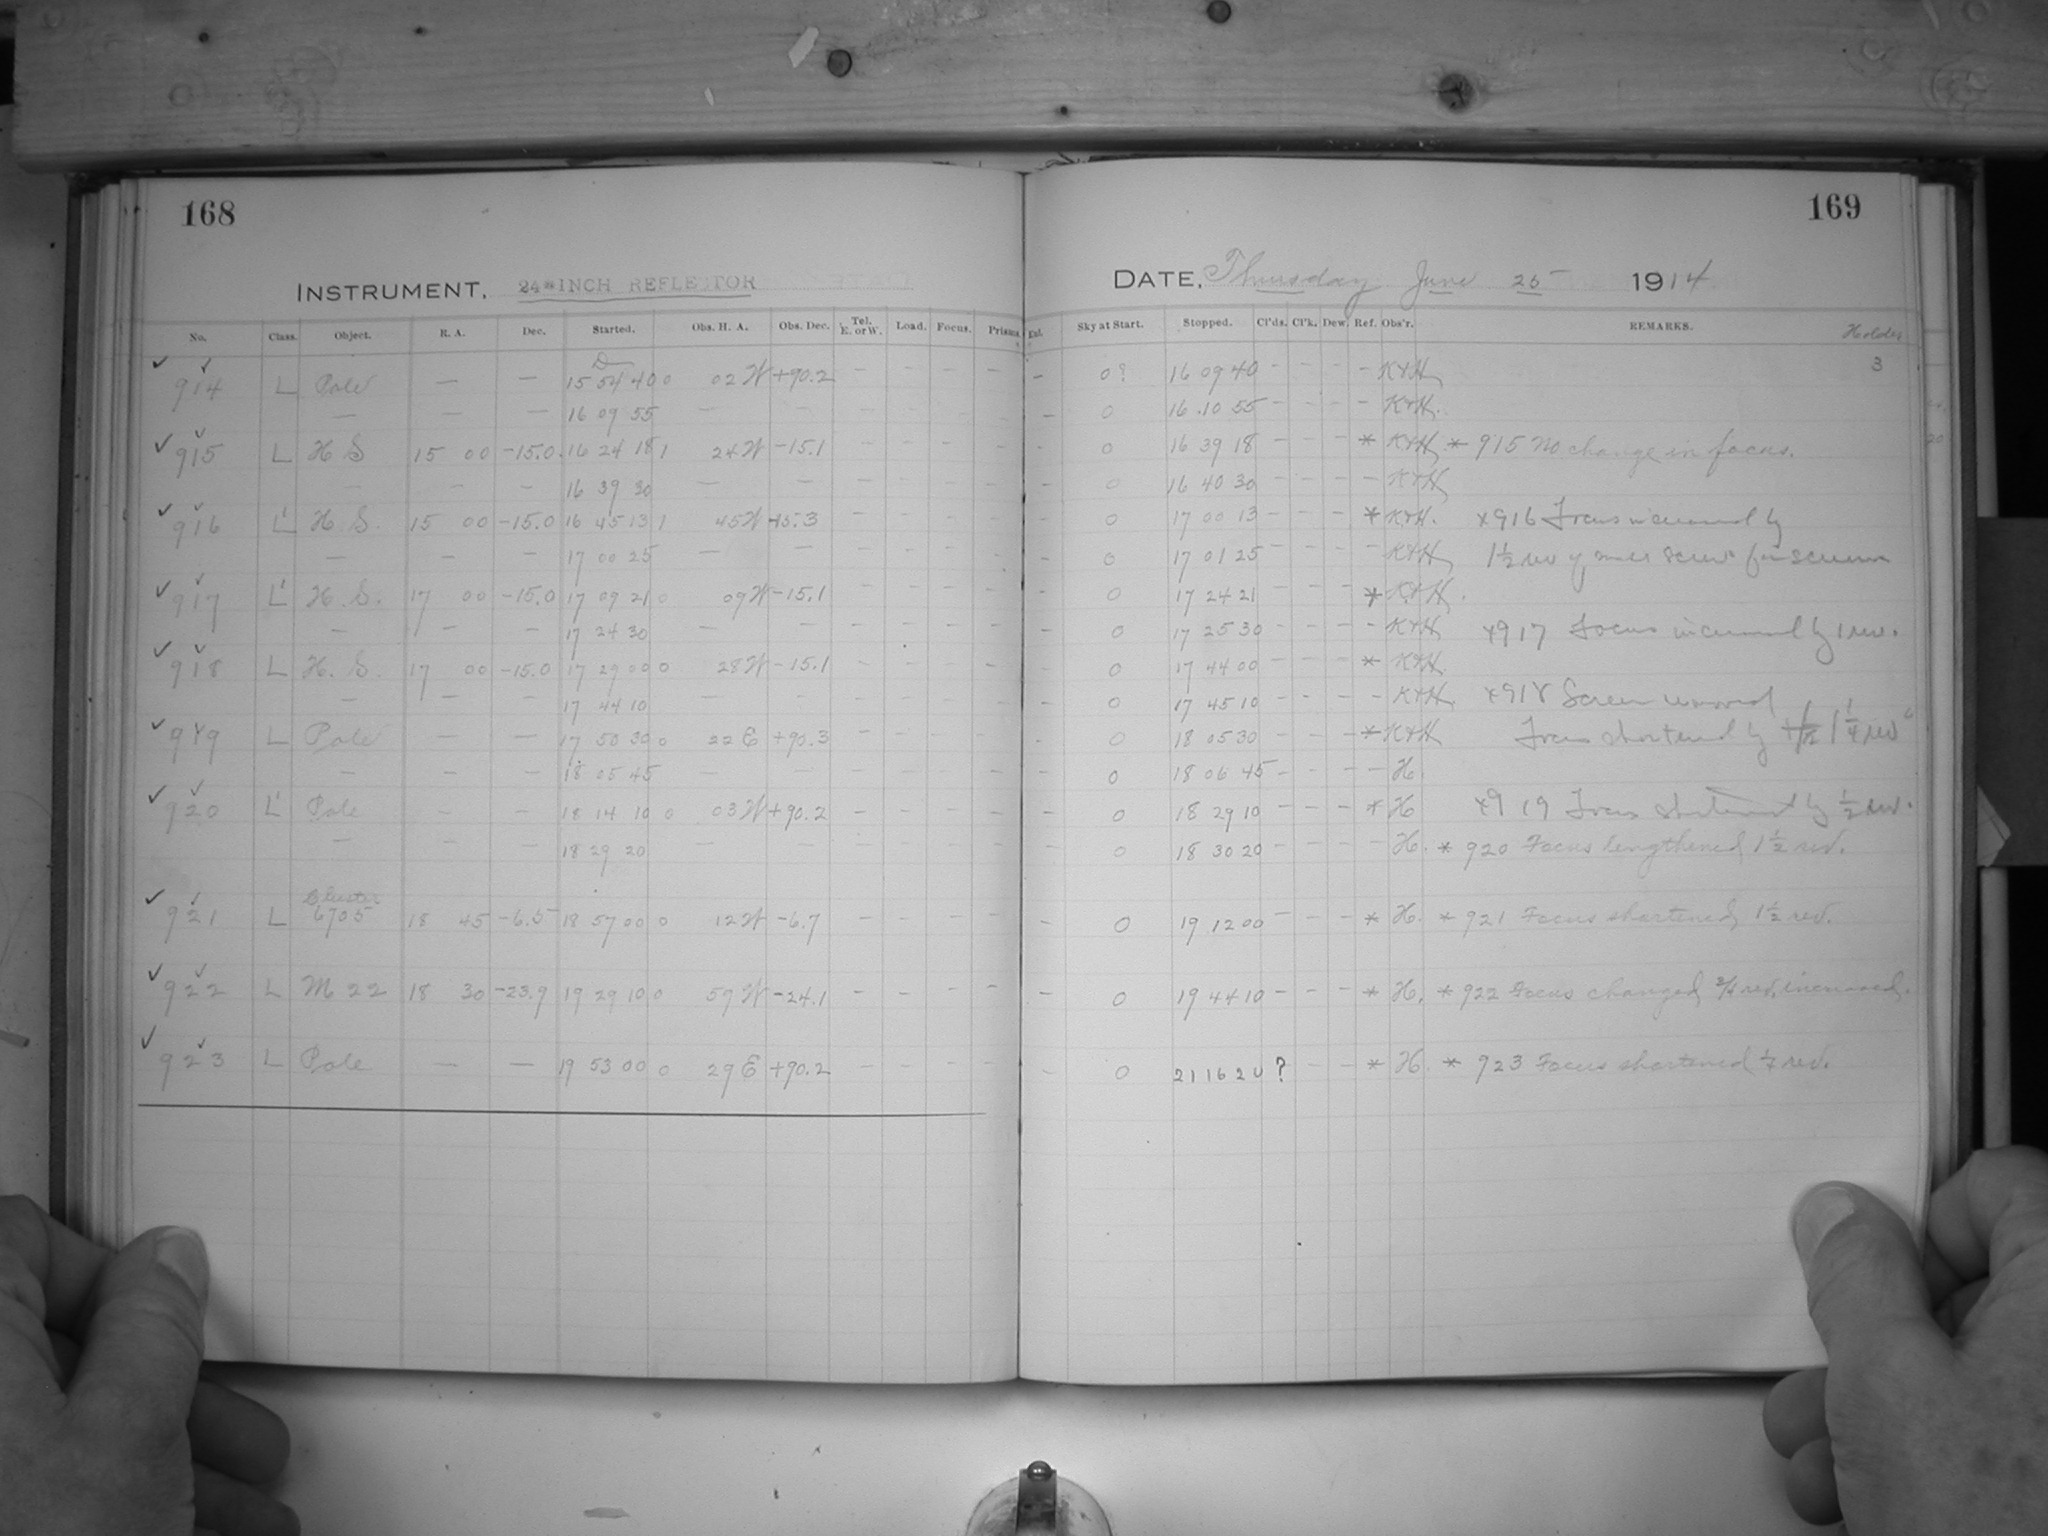 168
INSTRUMENT, 24-INCH REFLECTOR
No. Class. Object. R. A. Dec. Started. Obs. H. A. Obs. Dec. Tel. E. or W. Load. Focus. Prisms.
914 L Pole — — 15 54 40 0 02 W +90.2 — — — —
— — — 16 09 55 —
915 L H S 15 00 -15.0 16 24 18 1 24 W -15.1 — — — —
— — — 16 39 30 — — — — — —
916 L' H. S. 15 00 -15.0 16 45 13 1 45 W -15.3 — — — —
— — — 17 00 25 — — — — — —
917 L' H. S. 17 00 -15.0 17 09 21 0 09 W -15.1 — — — —
— — — 17 24 30 — — — — — —
918 L H. S. 17 00 -15.0 17 29 00 0 28 W -15.1 — — — —
— — — 17 44 10 — — — — — —
919 L Pole — — 17 50 30 0 22 E +90.3 — — — —
— — — 18 05 45 — — — — — —
920 L' Pole — — 18 14 10 0 03 W +90.2 — — — —
— — — 18 29 20 — — — — — —
Cluster
921 L 6705 18 45 -6.5 18 57 00 0 12 W -6.7 — — — —
922 L M 22 18 30 -23.9 19 29 10 0 59 W -24.1 — — — —
923 L Pole — — 19 53 00 0 29 E +90.2 — — — —
169
DATE, Thursday June 25 1914
Sky at Start. Stopped. Cl'ds. Cl'k. Dew. Ref. Obs'r. REMARKS. Holder
— 0? 16 09 40 — — — — K&H 3
— 0 16 10 55 — — — — K&H.
— 0 16 39 18 — — — * K&H. * 915 No change in focus.
— 0 16 40 30 — — — — K&H
— 0 17 00 13 — — — * K&H. *916 Focus increased by
— 0 17 01 25 — — — — K&H 1½ rev of screw for screen
— 0 17 24 21 — — — * K&H.
— 0 17 25 30 — — — — K&H *917 Focus increased by 1 rev.
— 0 17 44 00 — — — * K&H.
— 0 17 45 10 — — — — K&H. *918 Screen removed
— 0 18 05 30 — — — * K&H Focus shortened by 1¼ rev
— 0 18 06 45 — — — — H
— 0 18 29 10 — — — * H *919 Focus shortened by ½ rev.
— 0 18 30 20 — — — — H. * 920 Focus lengthened 1½ rev.
— 0 19 12 00 — — — * H. * 921 Focus shortened 1½ rev.
— 0 19 44 10 — — — * H. * 922 Focus changed rev. increased.
— 0 21 16 20 ? — — * H. * 923 Focus shortened rev.